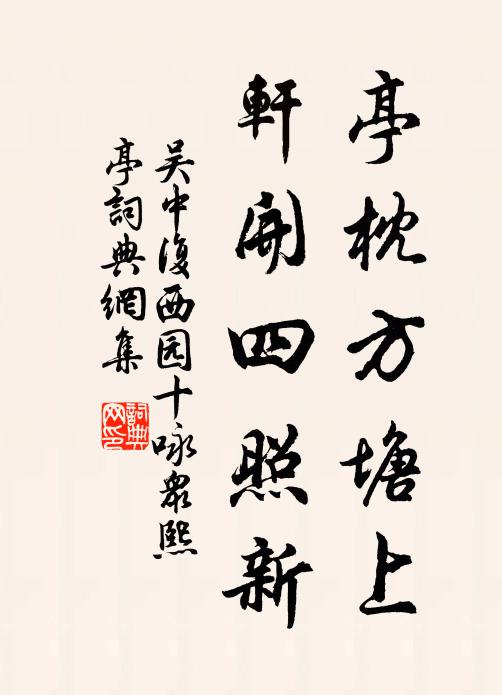 亭枕方塘上
軒開四照新
吴中復西园十咏眾熙
亭詞典網集
詞典
网印